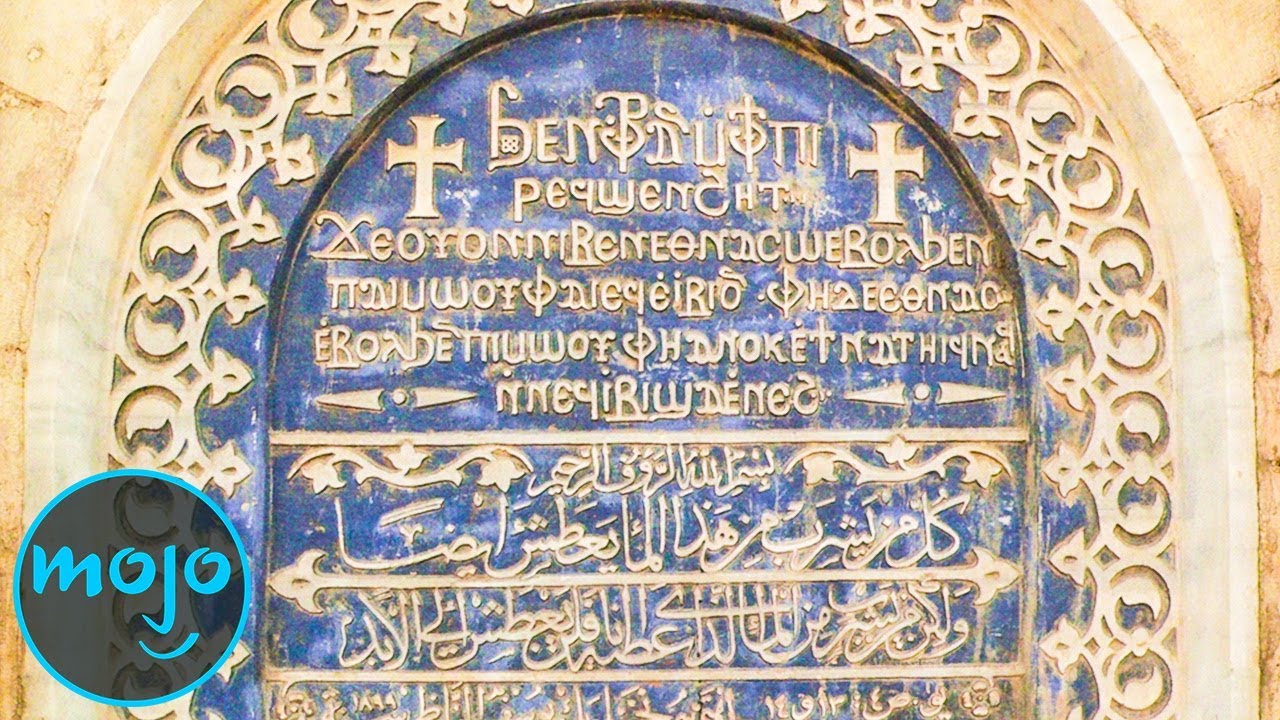 Ϧⲉⲛⲫⲣⲁⲛⲙ̀ⲫϯⲡⲓ
ⲣⲉϥϣⲉⲛϩⲏⲧ
ϫⲉⲟⲩⲟⲛⲛⲓⲃⲉⲛⲉⲑⲛⲁⲥⲱⲉⲃⲟⲗϧⲉⲛ
ⲡⲁⲓⲙⲱⲟⲩⲫⲁⲓⲉϥⲉ̀ⲓⲃⲓⲟⲛ · ⲫⲏⲇⲉⲉⲑⲛⲁⲥⲱ
ⲉ̀ⲃⲟⲗϧⲉⲛⲡⲓⲙⲱⲟⲩⲫⲏⲁⲛⲟⲕⲉ̀ϯⲛⲁⲧⲏⲓϥⲛⲁϥ
ⲛ̀ⲛⲉϥⲓ̀ⲃⲓϣⲁⲉ̀ⲛⲉϩ
بسم الله الرؤف الرحيم
كل من يشرب من هذا الما يعطش ايضًا
ولكن من يشرب من الماء الذي اعطيه انا فلن يعطش الى الابد
mojo